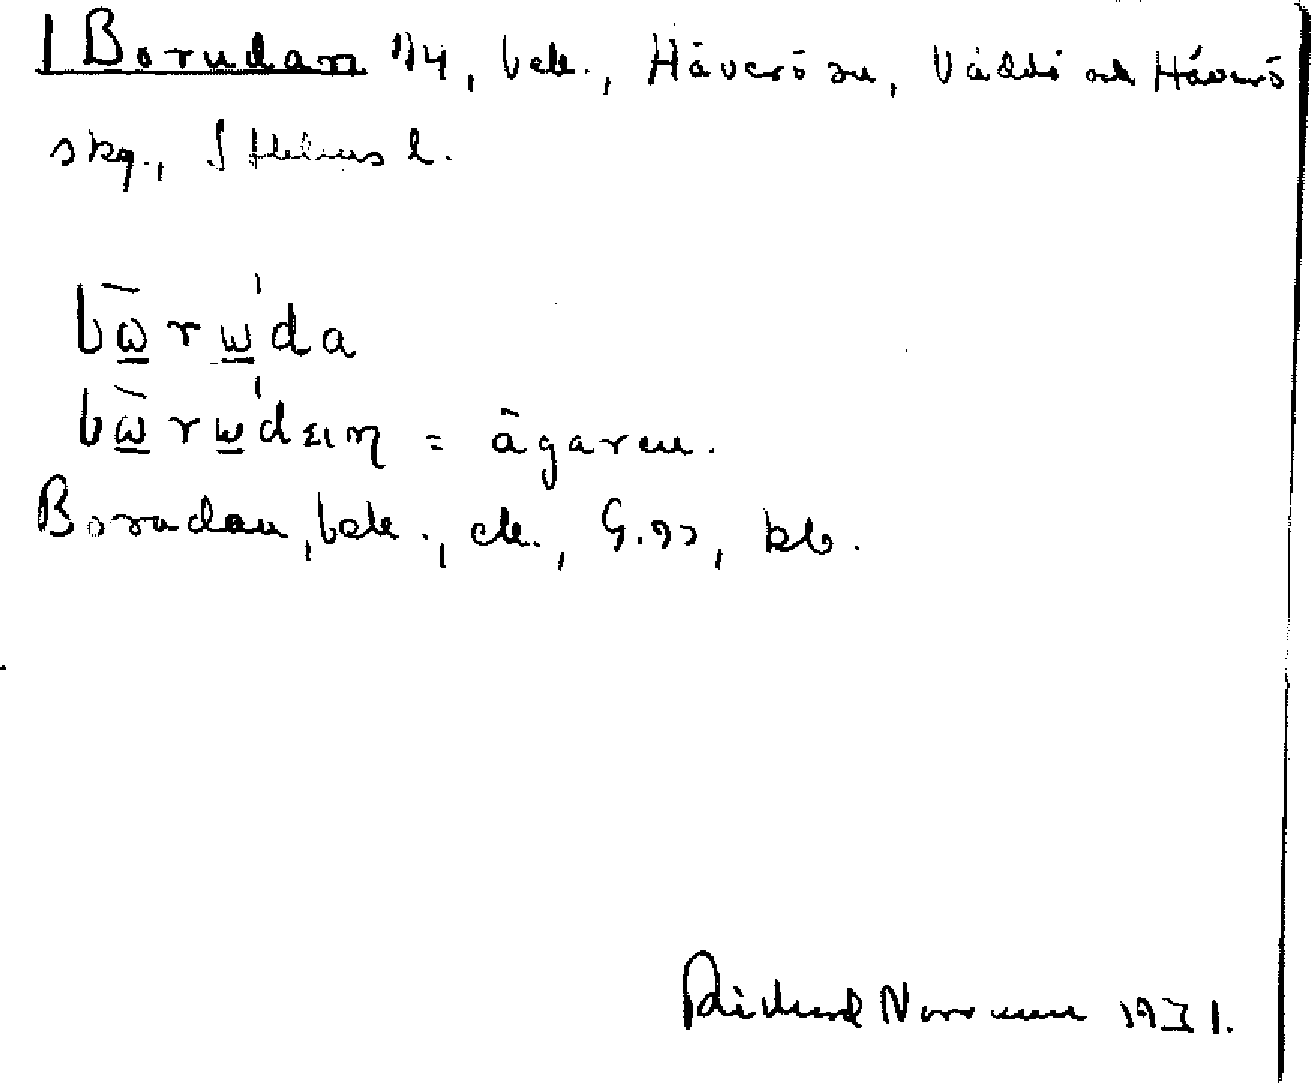 Borudan 1/4, beb., Häverö sn, Väddö och Häverö
skg., Sthlms l.
bω̱̄rώ̱da
bω̱̄rώ̱dαıŋ = ägaren.
Borudan, beb., ek., G. 92, kb.
Richard Norrman 1931.